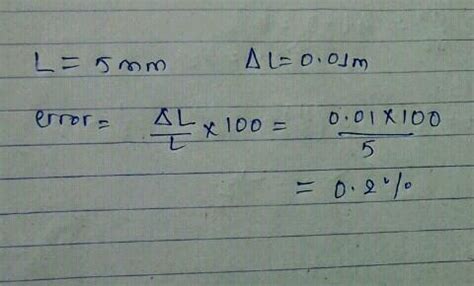 L = 5mm ΔL = 0.01m
error = ΔL/L × 100 = 0.01 × 100/5
= 0.2%